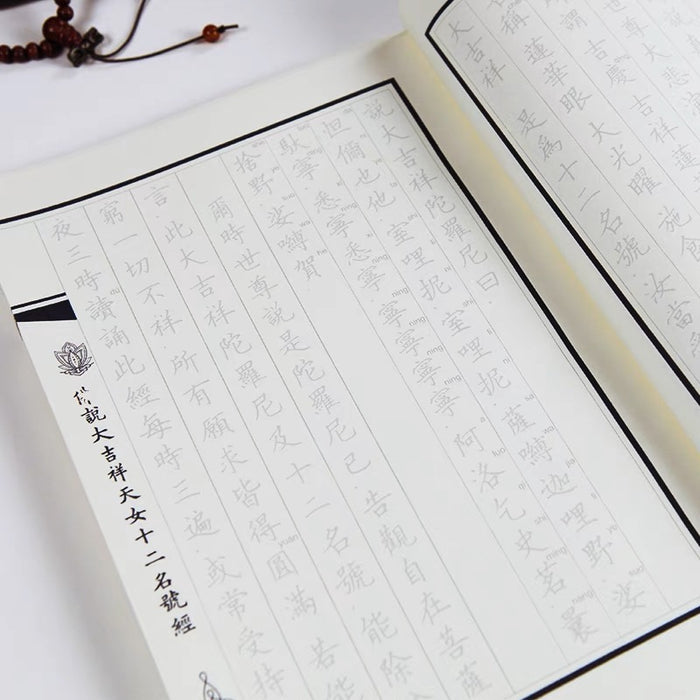 大吉祥蓮
稱蓮華眼 大光曜 施食
大吉祥 是為十二名號 汝當
說大吉祥陀羅尼曰
怛儞也他 室哩抳 室哩抳 薩嚩迦哩野 娑
馱寧 悉寧 悉寧 寧寧寧寧 阿洛乞史茗曩
捨野 娑嚩賀
爾時世尊說是陀羅尼已 告觀自在菩薩
言 此大吉祥陀羅尼及十二名號 能除
窮一切不祥 所有願求皆得圓滿 若能
夜三時讀誦此經每時三遍 或常受持
佛說大吉祥天女十二名號經